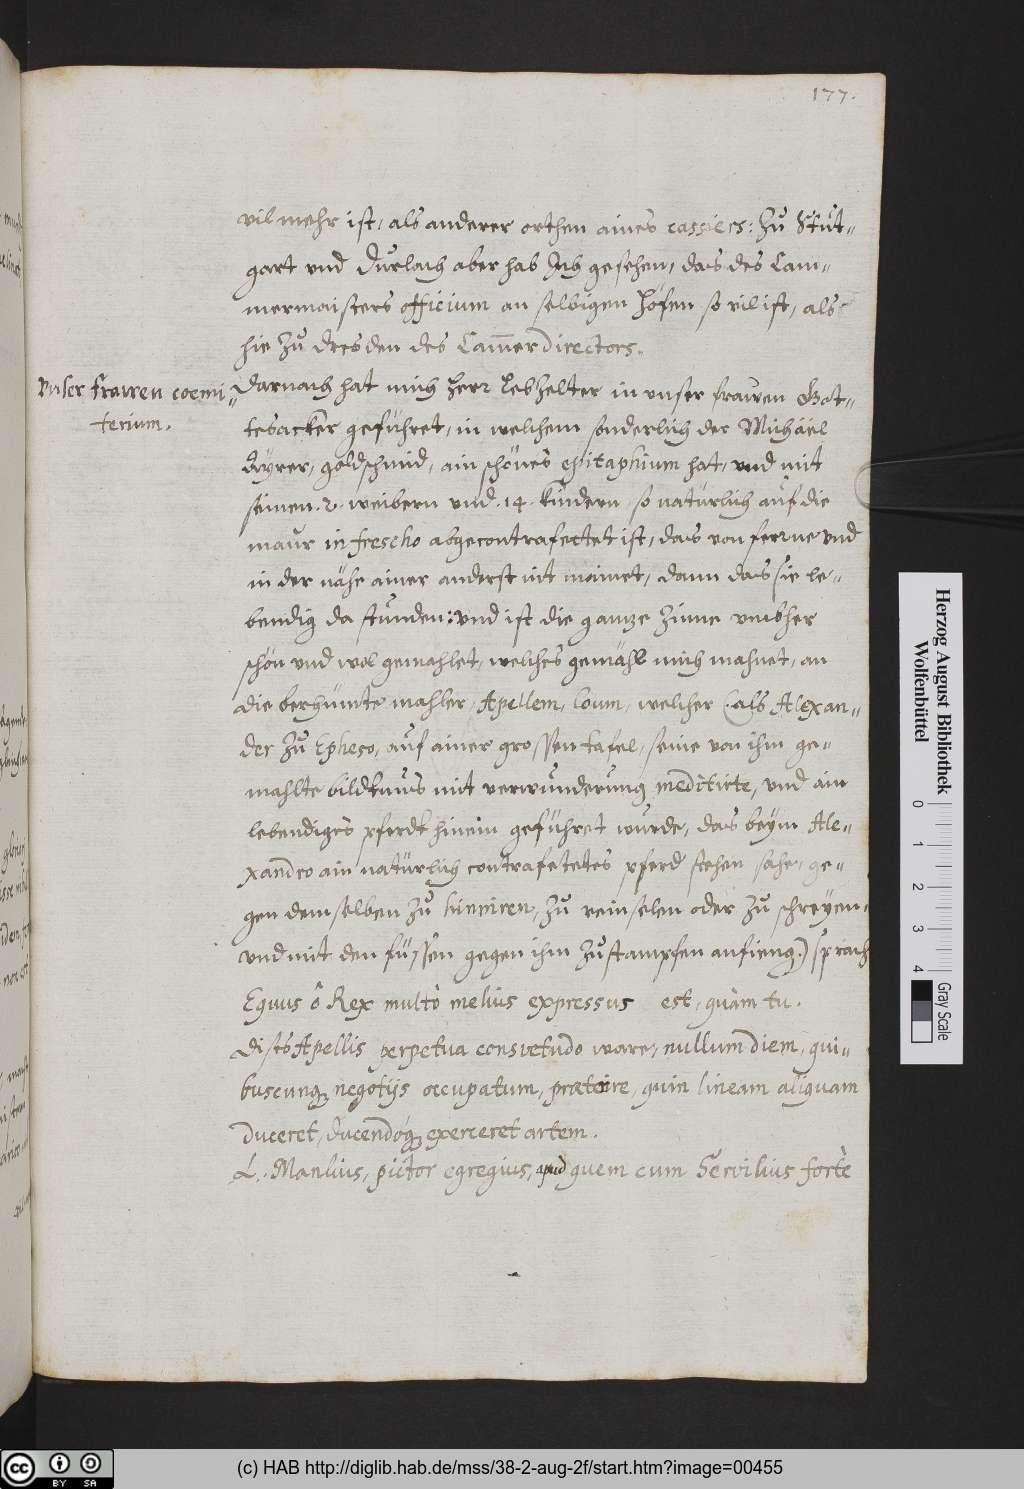 177.
vil mehr ist, als anderer orthen aines cassiers: Zů Stůt-
gart vnd Důrlach aber hab Ich gesehen, das des Cam-
mermaisters officium an selbigen höfen so vil ist, als
hie zů dresden des Cam̄er directors.
Vnser frawen coemi-
terium.
Darnach hat mich herr Lebzelter in vnser frawen Got-
tesacker geführet, in welchem sonderlich der Michäel
goldschmid, ain schönes epitaphium hat, vnd mit
seinen .2. weibern vnd .14. kindern, so natürlich aůf die
maůr in frescho abgecontrafettet ist, das von ferrne vnd
in der nähe ainer anderst nit mainet, dann das sie le-
bendig da stůnden: vnd ist die gantze Zinne vmbher
schön vnd wol gemahlet, welches gemähl mich mahnet, an
die berhümte mahler, Apellem, Coum, welcher (als Alexan-
der zů Epheso, aůf ainer grossen tafel, seine von ihm ge-
mahlte bildtnůs mit verwůnderůng meditirte, vnd ain
lebendiges pferdt hinein geführet wůrde, das beÿm Ale-
xandro ain natürlich contrafetetes pferd stehen sahe, ge-
gen demselben zů hinniren, zů reinselen oder zů schreÿen,
vnd mit den füssen gegen ihm zů stampfen anfieng.) sprach
Equus ô Rex multò melius expressus est, quàm tu.
Apellis perpetua consvetudo ware, nullum diem, qui-
buscunq; negotijs occupatum, præterire, quin lineam aliquam
duceret, ducendóq; exerceret artem.
L. Manlius, pictor egregius, apud quem cum Servilius fortè
Herzog August Bibliothek
Wolfenbüttel
0 1 2 3 4
Gray Scale
cc BY SA
(c) HAB http://diglib.hab.de/mss/38-2-aug-2f/start.htm?image=00455